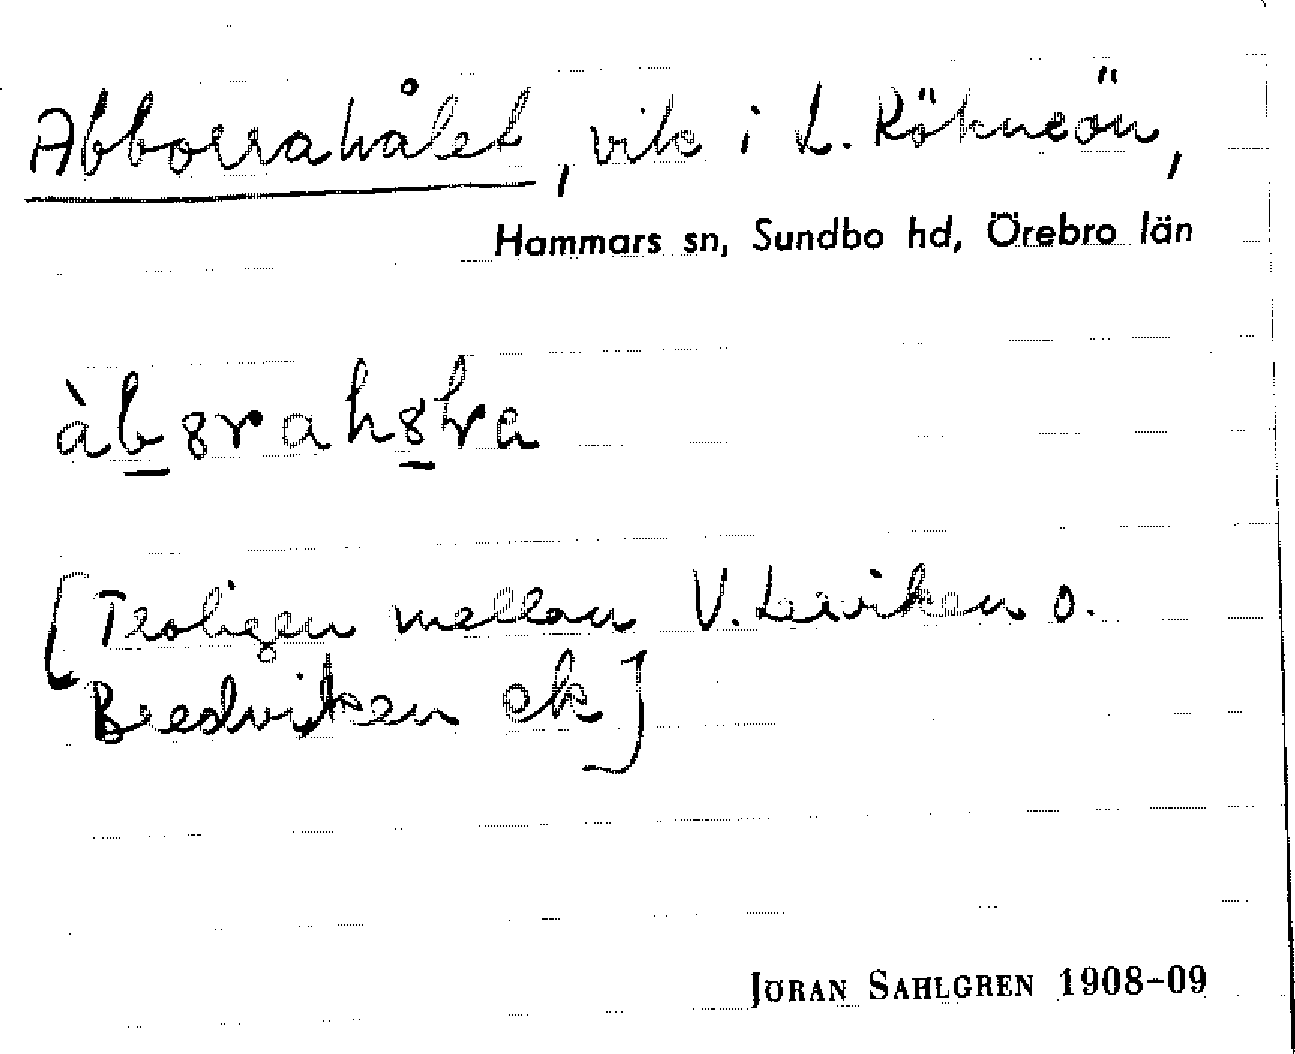 Abborrahålet, vik i L. Rökneön,
Hammars sn, Sundbo hd, Örebro län
[Troligen mellan V. Lerviken o.
Bredviken ek]
JÖRAN SAHLGREN 1908-09